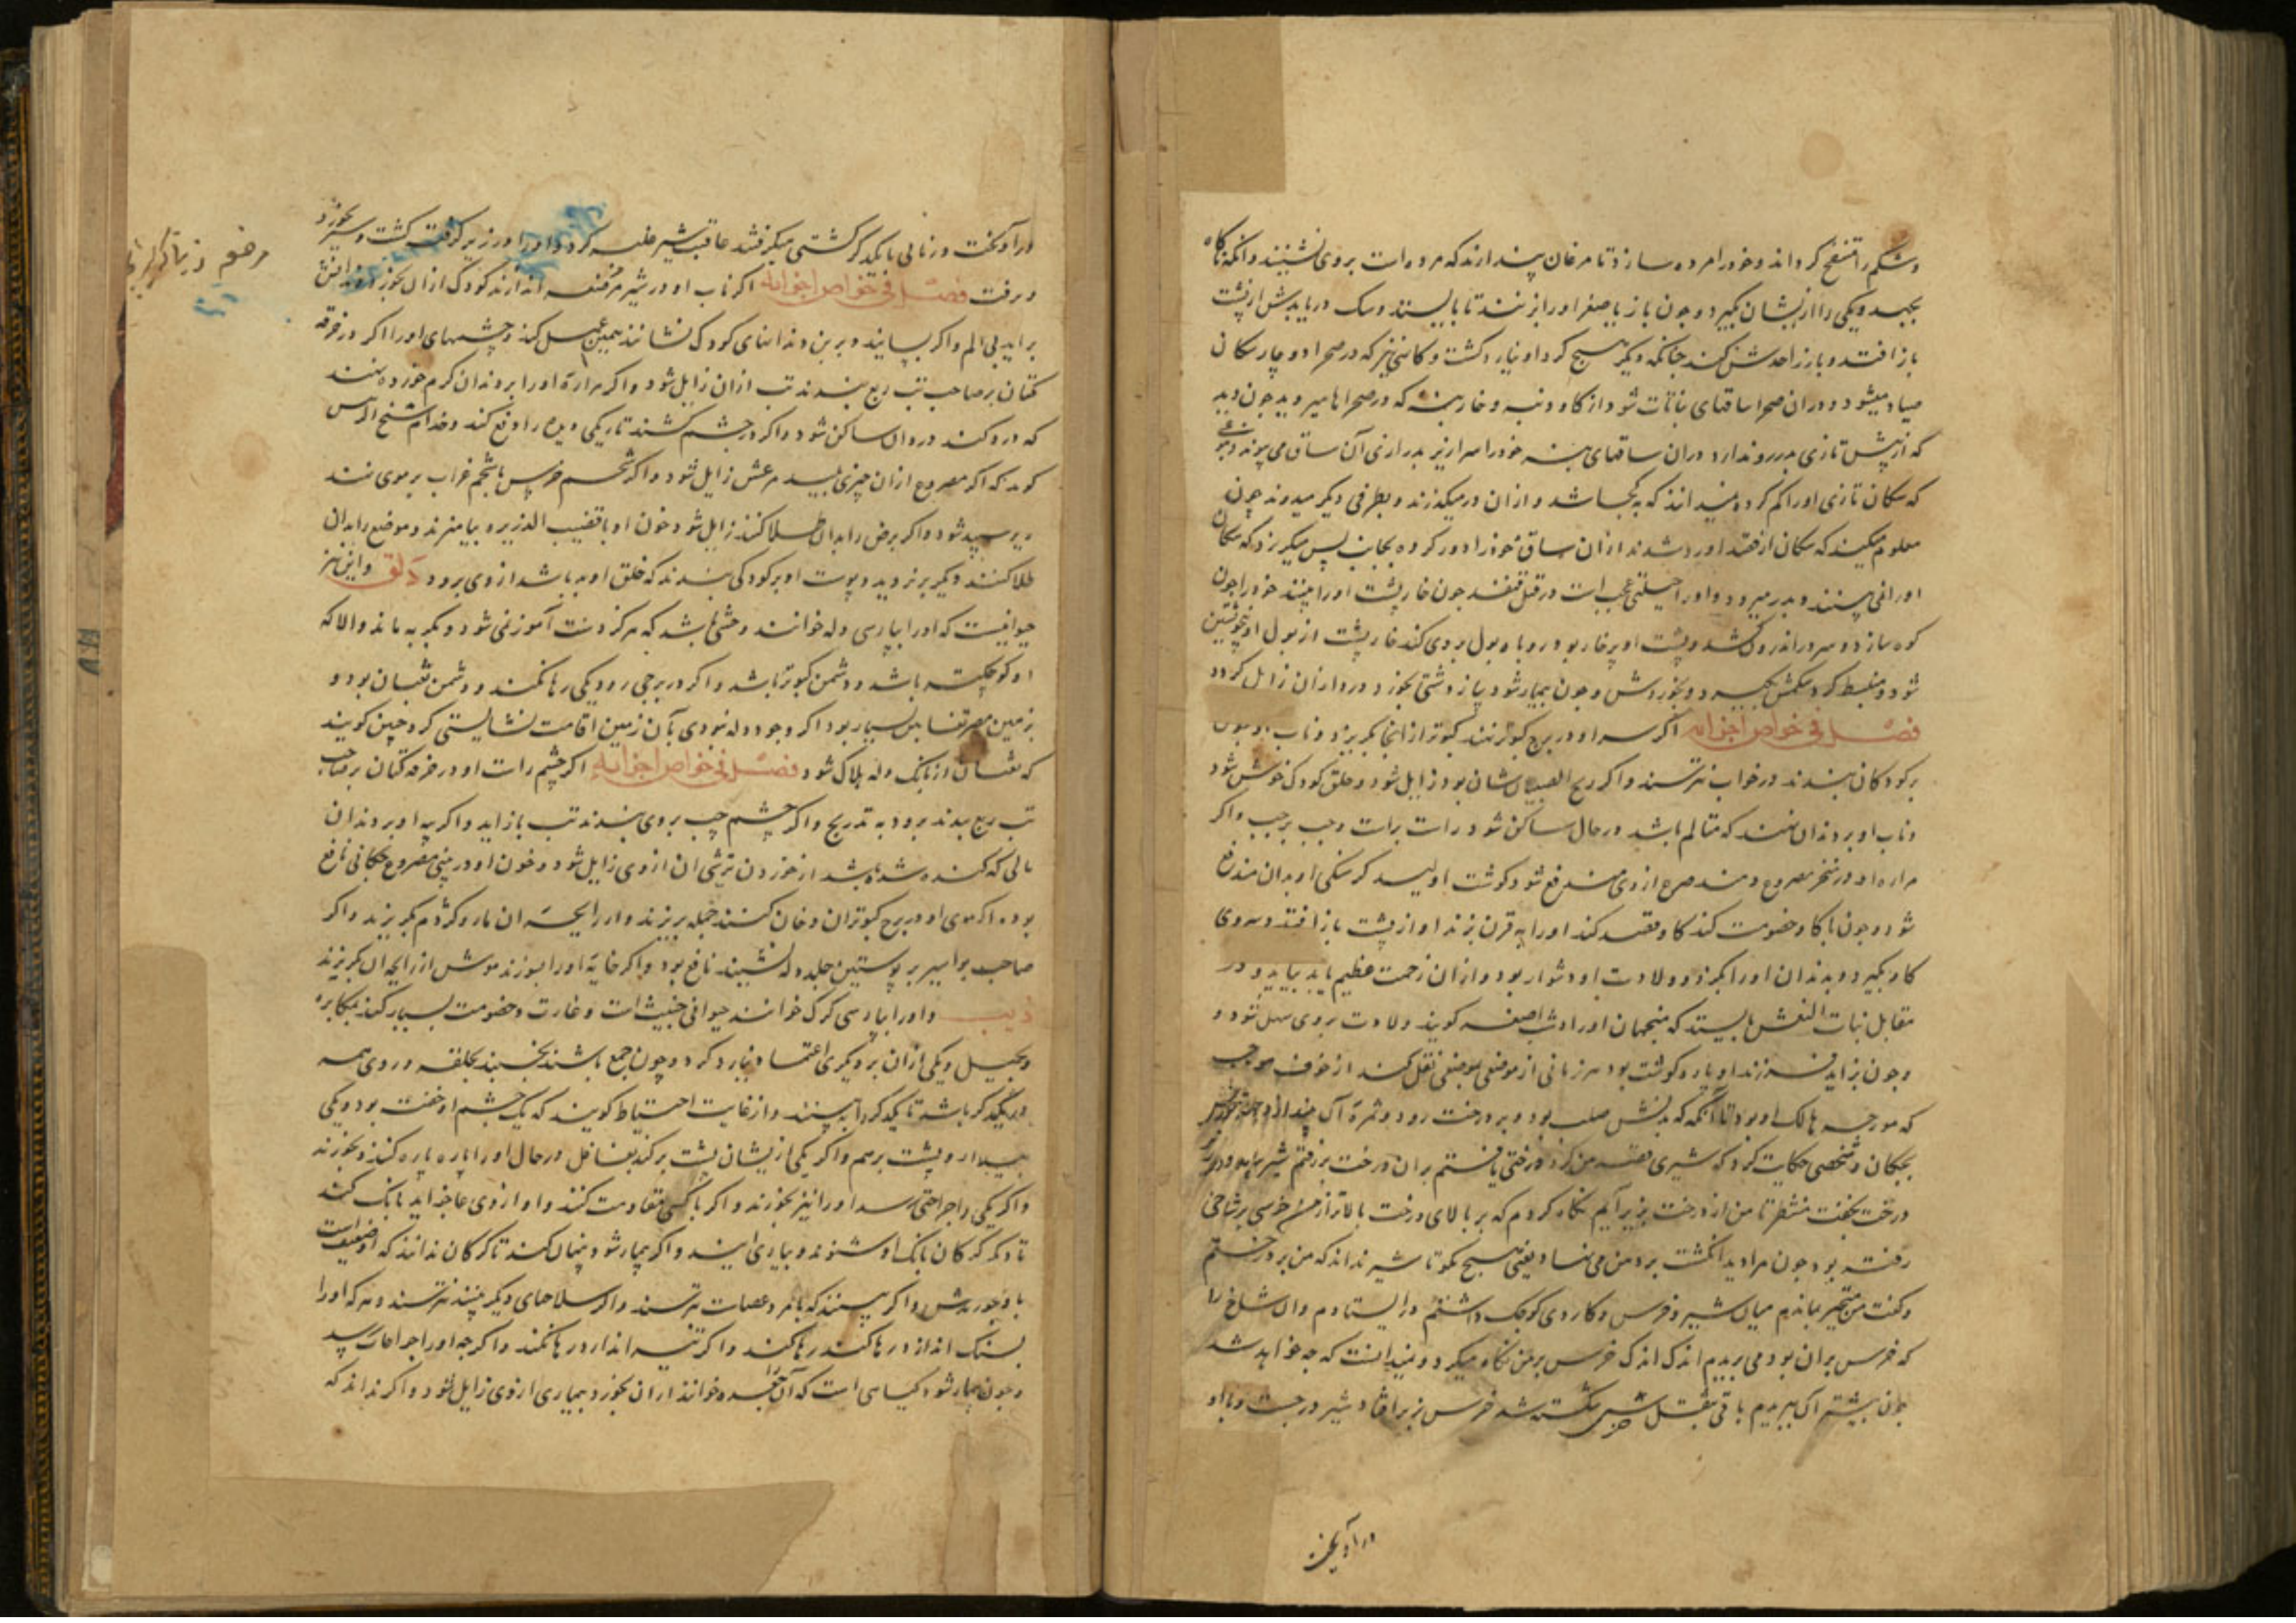 و شکم را منتفخ کرداند و خود را مرده سازد تا مرغان پندارند که مرده است بروی نشینند و انکه ناکاه
بجهد و یکی را از ایشان بکیرد و چون باز یا صقر او را بزنند تا بایستد و سک دریابدش از پشت
باز افتد و بارز احدش کند چنانکه دیکر هیچ کرد او نیارد کشت و کاه نیز که در صحرا دوچار سکان
صیاد میشود و دران صحرا ساقهای نباتات شود از کاو دنبه و خار بنه که در صحراها میروید چون دید
که از پیش تازی بدر رو ندارد دران ساقهای بنه خود را سرازیر بدرازی آن ساق می پیوندد
که سکان تازی او را کم کرده نمیدانند که بکجا شد و ازان درمیکذرند و بطرفی دیکر میدوند چون
معلوم میکند که سکان از قصد او رد شدند ازان ساق خود را دور کرده بجانب پس میکریزد که سکان
او را نمی بینند و بدر میرود و او را حیلتی عجب است در قتل قنفذ چون خار پشت او را بیند خود را چون
کوه سازد و سر در اندرون کشد و پشت او پر خار بود روباه بول بر وی کند خار پشت از بول او
شود و منبسط کردد شکمش بکیرد و بخوردش و چون بیمار شود پیاز دشتی بخورد درد ازان زایل کردد
فصل فی خواص اجزائه اکر سر او در برج کبوتر نهند کبوتر از انجا بکریزد و ناب او چون
بر کودکان بندند در خواب نترسند و اکر ریح الصبیان شان بود زایل شود و خلق کودک خوش شود
و ناب او بر دندان نهند که متالم باشد در حال ساکن شود راست براست و چپ بر چپ و اکر
مراره او در منخر مصروع دمند صرع از وی مندفع شود کوشت او لیسد کرسنکی او بدان مندفع
شود و چون با کاو خصومت کند کاو قصد کند او را به قرن بزند او از پشت باز افتد و سروی
کاو بکیرد و بدندان او را بکزد و ولادت او دشوار بود و ازان زحمت عظیم یابد بیاید و در
مقابل بنات النعش بایستد که منجمان او را دب اصغر کویند ولادت بروی سهل شود و
چون بزاید فرزند او پاره کوشت بود هر زمانی از موضعی بموضعی نقل کند از خوف مورچه
که مورچه هالک او بود تا آنکه که بدنش صلب بود و بر درخت رود و ثمرۀ آن بیندازد
بچکان و شخصی حکایت کرد که شیری قصد من کرد درختی یافتم بران درخت برفتم شیر بیامد و در زیر
درخت بخفت منتظر تا من از درخت بزیر آیم نکاه کردم که بر بالای درخت بالاتر از من خرسی بر شاخی
رفته بود چون مرا دید انکشت بر دهن می نهاد یعنی هیچ مکو تا شیر نداند که من بر درختم
و کفت من متحیر بماندم میان شیر و خرس و کاردی کوچک داشتم در ایستادم و ان شاخ را
که خرس بران بود می بریدم اندک اندک خرس بر من نکاه میکرد و نمیدانست که چه خواهد شد
چون بیشتر آن ببریدم باقی بثقل خرس شکسته شد خرس بزیر افتاد شیر در جست و با او
در آویخت

در آویخت و زمانی با یکدکر کشتی میکرفتند عاقبت شیر غلبه کرد و او را در زیر کرفت کشت و سیر بخورد
و رفت فصل فی خواص اجزائه اکر ناب او در شیر مرضعه اندازند کودک ازان بخورد دندانش
بر اید بی الم و اکر بسایند و برین دندانهای کودک نشانند همین عمل کند و چشمهای او را اکر در خرقه
کتان بر صاحب تب ربع بندند تب ازان زایل شود و اکر مرارۀ او را بر دندان کرم خورده نهند
که درد کند در حال ساکن شود و اکر در چشم کشند تاریکی و دمع را دفع کند
کوید که اکر مصروع ازان چیزی بلیسد مرعش زایل شود و اکر شحم خرس با شحم غراب بر موی نهند
دیر سپید شود و اکر برص را بدان طلا کنند زایل شود خون او با قضیب الذریره بیامیزند و موضع را بدان
طلا کنند دیکر بنروید و پوست او بر کودکی بندند که خلق او بد باشد از وی برود دلق و این نیز
حیوانیست که او را بپارسی دله خوانند وحشی باشد که هرکز دست آموز نمی شود و بکربه ماند و الا که
او کوچکتر باشد و دشمن کبوتر باشد و اکر در برجی رود یکی رها نکند و دشمن ثعبان بود و
بزمین مصر ثعابین بسیار بود اکر وجود دله نبودی بآن زمین اقامت نشایستی کرد چنین کویند
که ثعبان از بانک دله هلاک شود فصل فی خواص اجزائه اکر چشم راست او در خرقه کتان بر صاحب
تب ربع بندند برود به تدریج و اکر چشم چپ بروی بندند تب باز اید و اکر پیه او بر دندان
مالی که کند شده باشد از خوردن ترشی ان از وی زایل شود و خون او در بینی مصروع چکانی نافع
بود و اکر موی او در برج کبوتران دخان کنند جمله بریزند و از رایحه ان مار و کژدم بکریزد و اکر
صاحب بواسیر بر پوستین جلد دله نشیند نافع بود و اکر خایۀ او را بسوزند موش از رایحه ان بکریزند
ذیب و او را بپارسی کرک خوانند حیوانی خبیث است و غارت و خصومت بسیار کند بمکابره
و بحیل و یکی ازان بر دیکری اعتماد نیارد کرد و چون جمع باشند بخسبند بحلقه و روی همه
در یکدکر باشد تا یکدکر را ببینند و از غایت احتیاط کویند که یک چشم او خفته بود و یکی
بیدار و پشت بر هم و اکر یکی از ایشان پشت بر کند بغافل در حال او را پاره پاره کنند و بخورند
و اکر یکی را جراحتی رسد او را نیز بخورند و اکر با کسی مقاومت کنند و او از وی عاجز اید بانک کند
تا دیکر کرکان بانک او شنوند و بیاری ایند و اکر بیمار شود پنهان کند تا کرکان ندانند که او ضعیف است
یا نخورندش و اکر ببینند که با مرد عصاست نترسند و اکر سلاحهای دیکر بینند نترسند و هر که او را
بسنک اندازد رها کند رها کند و اکر تیر اندازد رها نکند و اکرچه او را جراحات رسد
و چون بیمار شود کیاهی است که آن را جعده خوانند ازان بخورد بیماری از وی زایل شود و اکر نداند که